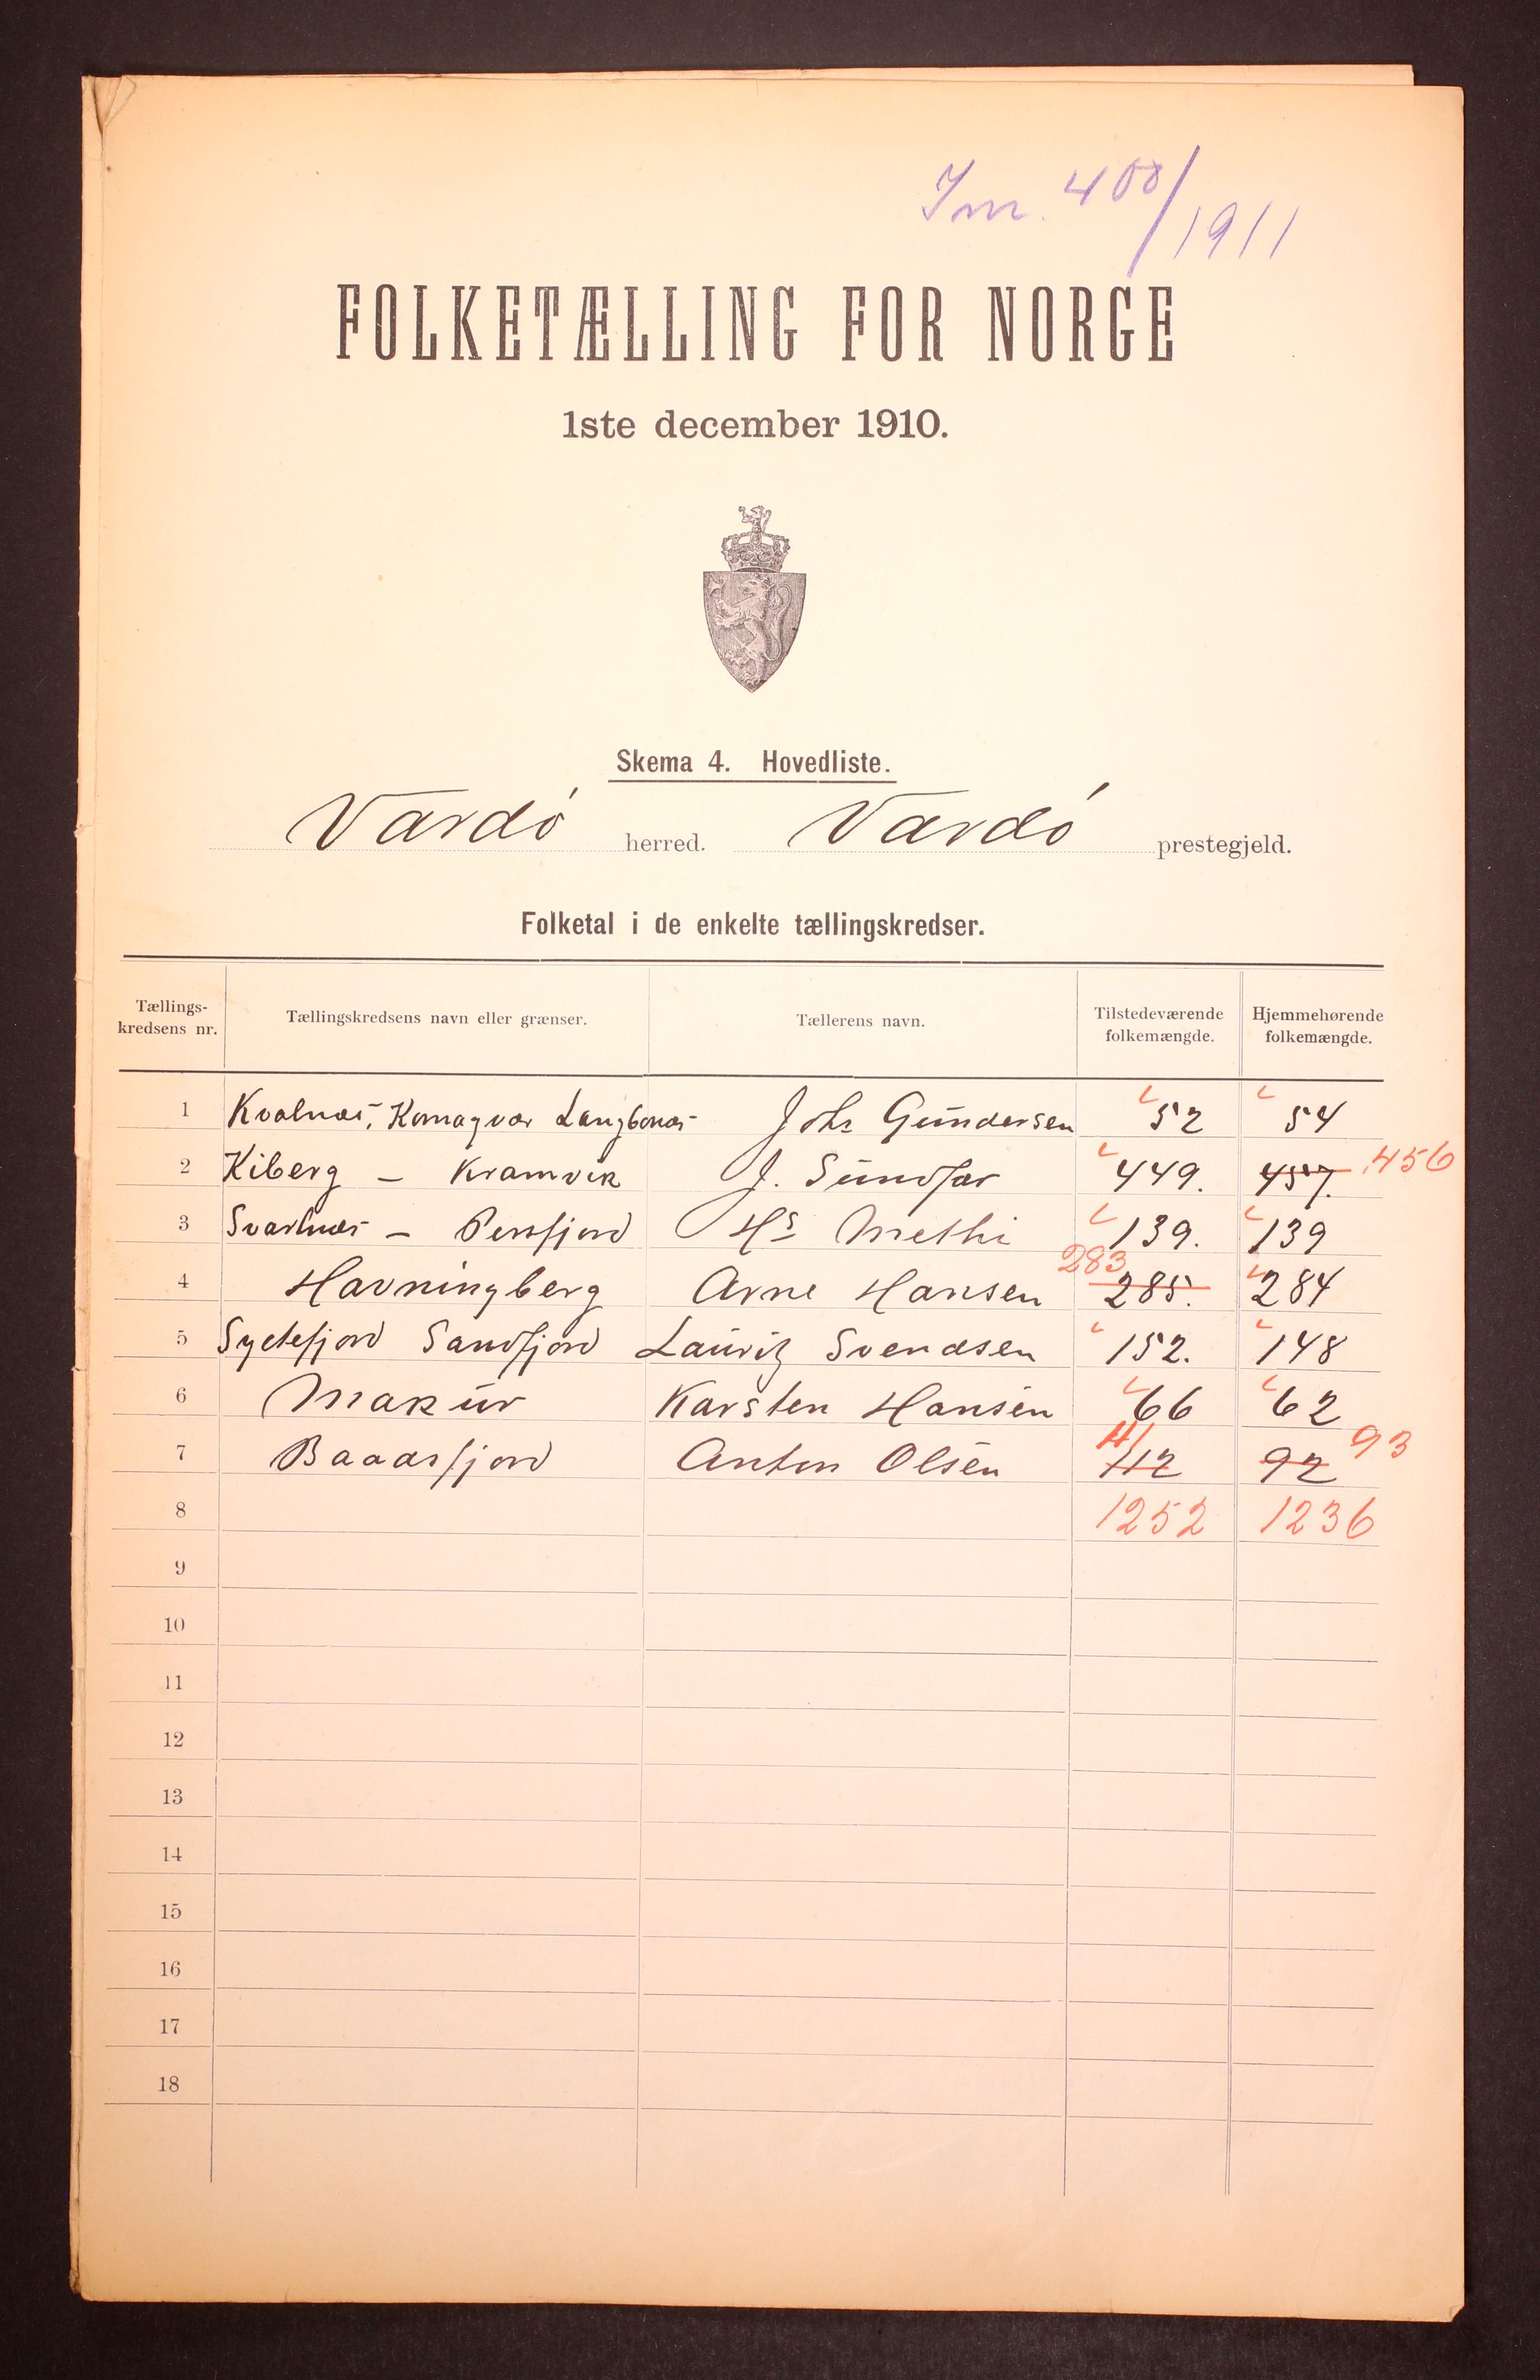 Jm. 400/1911
FOLKETÆLLING FOR NORGE
1ste december 1910.
Skema 4. Hovedliste.
Vardó herred. Vardó prestegjeld.
Folketal i de enkelte tællingskredser.
Tællings-kredsens nr. Tællingskredsens navn eller grænser. Tællerens navn. Tilstedeværende folkemængde. Hjemmehørende folkemængde.
1 Kvalnæs, Komagvær Langbunæs Johs Gundersen 52 54
2 Kiberg – Kramvik J. Sundfær 449. 457. 456
3 Svartnæs – Persfjord Hs Methi 139. 139
283
4 Havningberg Arne Hansen 285. 284
5 Syltefjord Sandfjord Lauritz Svendsen 152. 148
6 Makur Karsten Hansen 66 62
7 Baadsfjord Anton Olsen 112 111 92 93
8 1252 1236
9
10
11
12
13
14
15
16
17
18